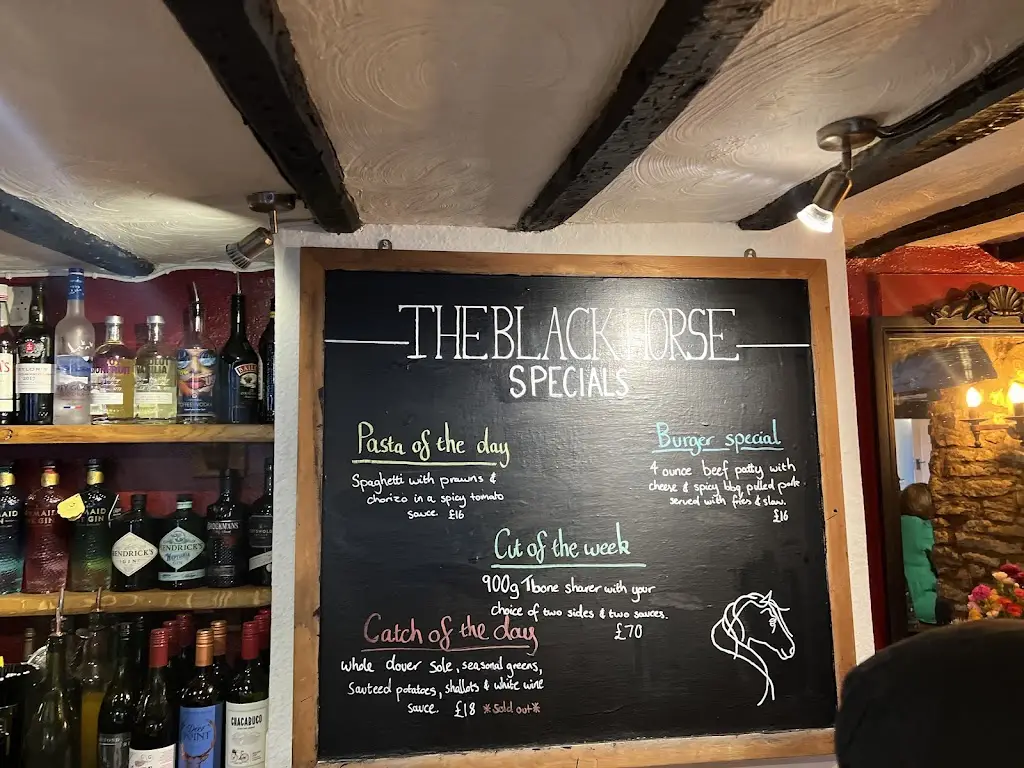 THE BLACK HORSE
SPECIALS
Pasta of the day
Spaghetti with prawns &
chorizo in a spicy tomato
sauce. £16
Burger special
4 ounce beef patty with
cheese & spicy bbq pulled pork
served with fries & slaw.
£16
Cut of the week
900g Tbone sharer with your
choice of two sides & two sauces.
£70
Catch of the day
whole dover sole, seasonal greens,
Sauteed potatoes, shallots & white wine
sauce. £18 *Sold out*
HENDRICK'S
HENDRICK'S
BROCKMANS
CHACABUCO
POINT